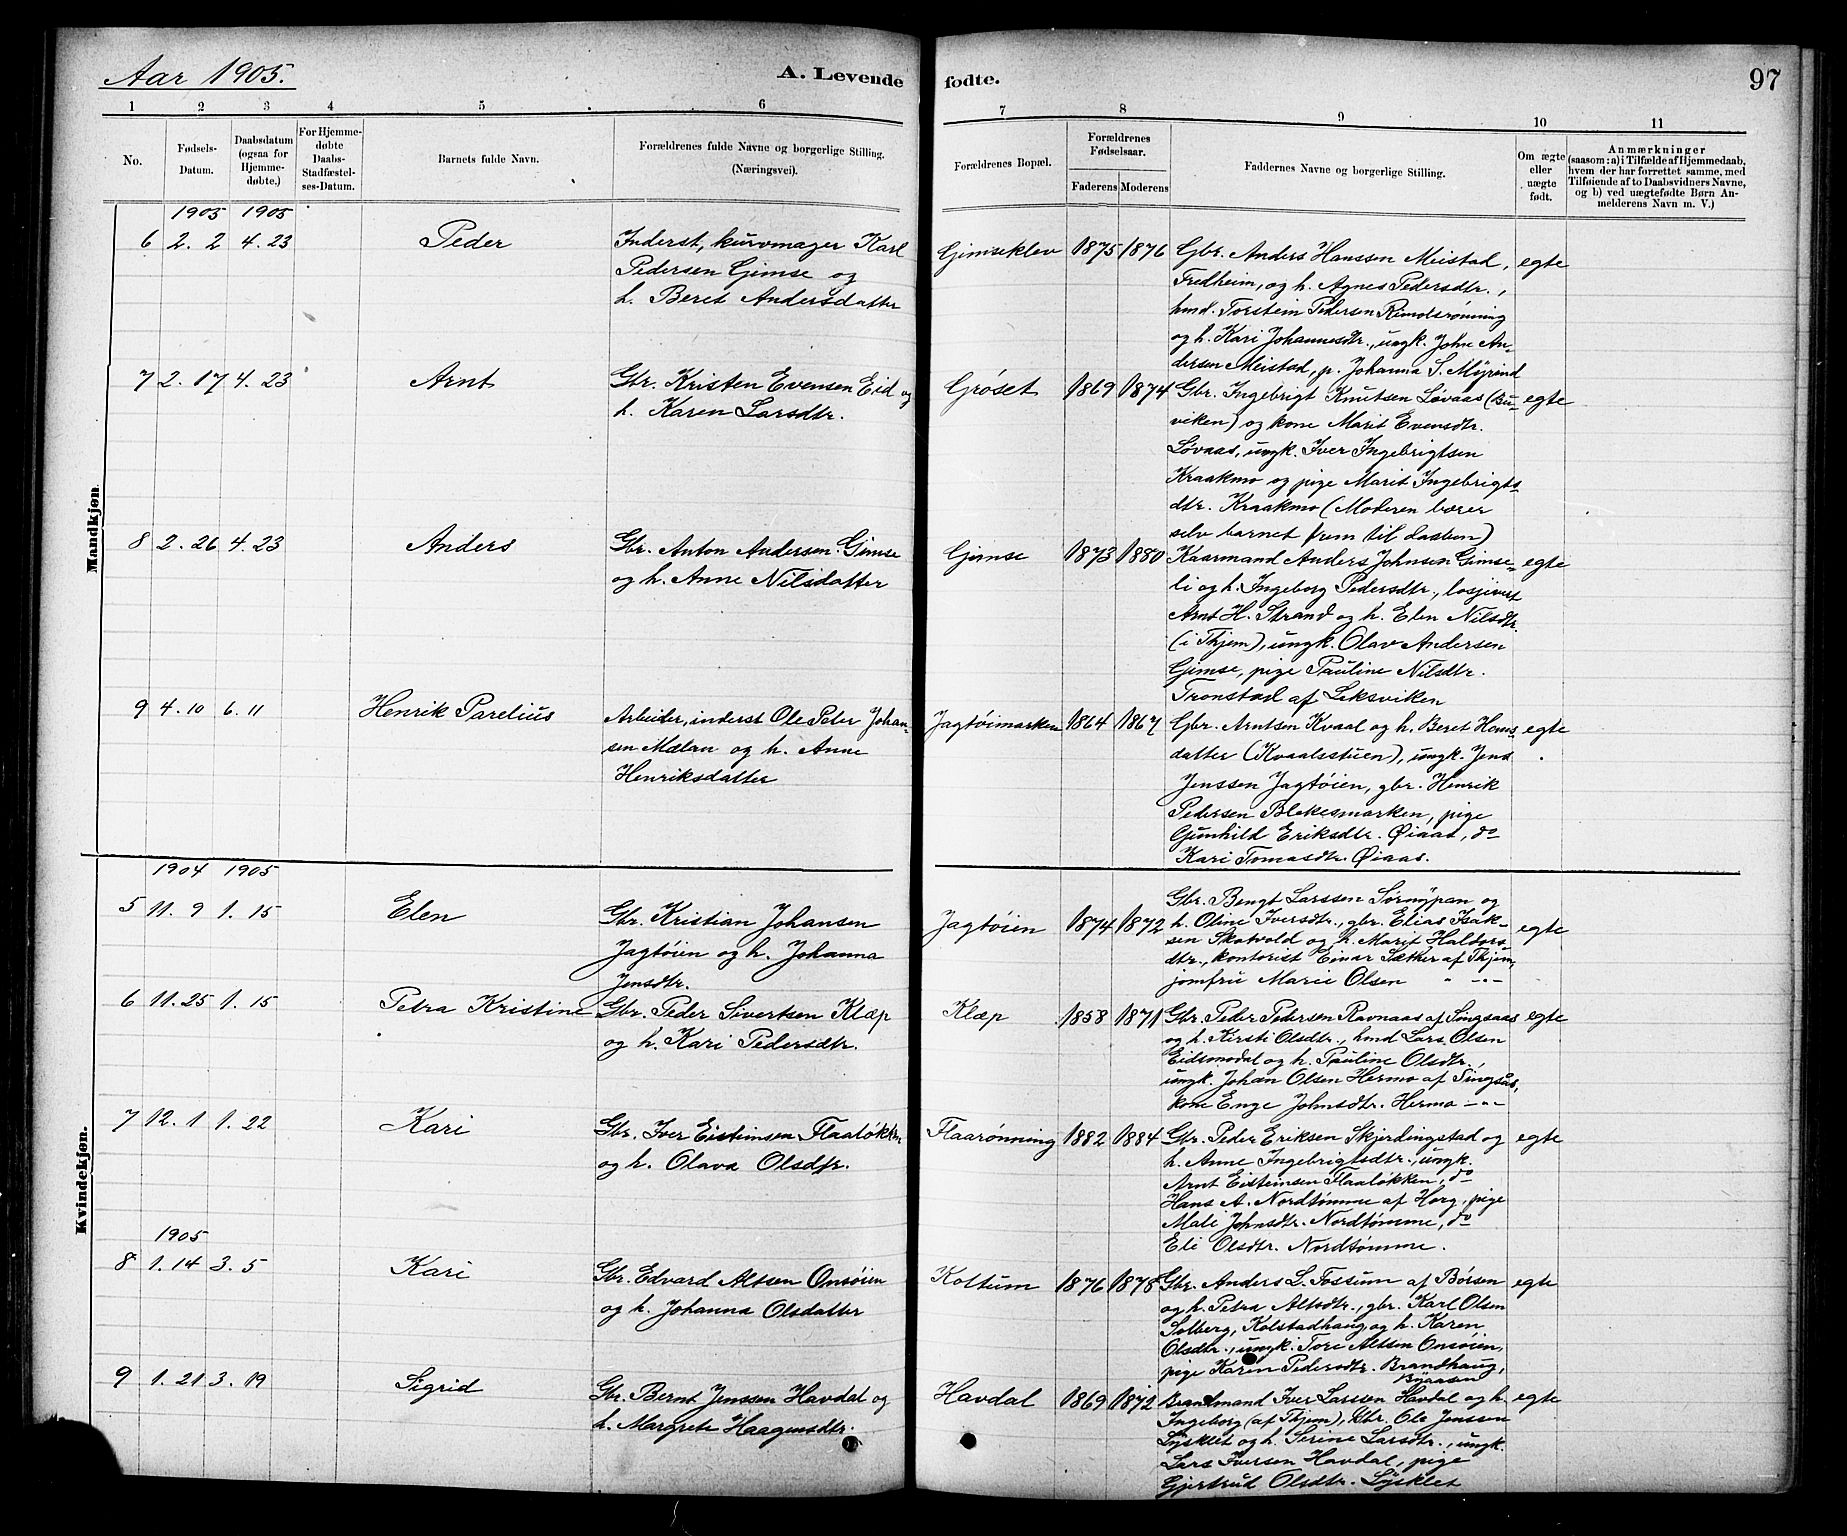 Aar 1905.
A. Levende fødte.
97
1 2 3 4 5 6 7 8 9 10 11
No.
Fødsels-
Datum.
Daabsdatum
(ogsaa for
Hjemme-
døbte.)
For Hjemme-
døbte
Daabs-
Stadfæstel-
ses-Datum.
Barnets fulde Navn.
Forældrenes fulde Navne og borgerlige Stilling.
(Næringsvei).
Forældrenes Bopæl.
Forældrenes
Fødselsaar.
Faderens Moderens
Faddernes Navne og borgerlige Stilling.
Om ægte
eller
uægte
født.
Anmærkninger
(saasom: a) i Tilfælde af Hjemmedaab,
hvem der har forrettet samme, med
Tilføiende af to Daabsvidners Navne,
og b) ved uægtefødte Børn An-
melderens Navn m. V.)
Mandkjøn.
1905 1905
6 2. 2 4. 23 Peder
Inderst, kurvmager Karl
Pedersen Gimse og
h. Beret Andersdatter
Gimseklev 1875 1876
Gbr. Anders Hanssen Meistad,
Fredheim, og h. Agnes Pedersdtr.,
hmd. Torstein Pedersen Rimolsrønning
og h. Kari Johannesdtr., ungk. John An-
dersen Meistad, p. Johanna S. Myrind
egte
7 2. 17 4. 23 Arnt
Gbr. Kristen Evensen Eid og
h. Karen Larsdtr.
Grøset 1869 1874
Gbr. Ingebrigt Knutsen Løvaas (Bu-
viken) og kone Marit Evensdtr.
Løvaas, ungk. Iver Ingebrigtsen
Kraakmo og pige Marit Ingebrigts-
dtr. Kraakmo (Moderen bærer
selv barnet frem til daaben)
egte
8 2. 26 4. 23 Anders
Gbr. Anton Andersen Gimse
og h. Anne Nilsdatter
Gimse 1873 1880
Kaarmand Anders Johnsen Gimse-
li og h. Ingeborg Pedersdtr., losjivert
Arnt H. Strand og h. Elen Nilsdtr.
(i Thjem), ungk. Olav Andersen
Gimse, pige Pauline Nilsdtr.
Tronstad af Leksviken
egte
9 4. 10 6. 11 Henrik Parelius
Arbeider, inderst Ole Peter Johan-
sen Mælan og h. Anne
Henriksdatter
Jagtøimarken 1864 1867
Gbr. Arntsen Kvaal og h. Beret Hans-
datter (Kvaalsstuen), ungk. Jens
Jenssen Jagtøien, gbr. Henrik
Pedersen Blekesmarken, pige
Gunhild Eriksdtr. Øiaas, do
Kari Tomasdtr. Øiaas.
egte
Kvindekjøn.
1904 1905
5 11. 9 1. 15 Elen
Gbr. Kristian Johansen
Jagtøien og h. Johanna
Jensdtr.
Jagtøien 1874 1872
Gbr. Bengt Larssen Sørnypan og
h. Oline Iversdtr., gbr. Elias Isak-
sen Skatvold og h. Marit Haldors-
dtr., kontorist Einar Sæther af Thjem,
jomfru Marie Olsen " -"-
egte
6 11. 25 1. 15 Petra Kristine
Gbr. Peder Sivertsen Klæp
og h. Kari Pedersdtr.
Klæp 1858 1871
Gbr. Peder Pedersen Ravnaas af Singsaas
og h. Kirsti Olsdtr., hmd Lars Olsen
Eidsmodal og h. Pauline Olsdtr.,
ungk. Johan Olsen Hermo af Singsås,
kone Enge Johnsdtr. Hermo -"-
egte
7 12. 1 1. 22 Kari
Gbr. Iver Eistensen Flaaløkken
og h. Olava Olsdtr.
Flaarønning 1882 1884
Gbr. Peder Eriksen Skjerdingstad og
h. Anne Ingebrigtsdtr., ungk.
Arnt Eistensen Flaaløkken, do
Hans A. Nordtømme af Horg, pige
Mali Johnsdtr. Nordtømme, do
Eli Olsdtr. Nordtømme.
egte
1905
8 1. 14 3. 5 Kari
Gbr. Edvard Altsen Onsøien
og h. Johanna Olsdatter
Koltum 1876 1878
Gbr. Anders L. Fossum af Børsen
og h. Petra Altsdtr., gbr. Karl Olsen
Solberg, Kolstadhaug og h. Karen
Olsdtr., ungk. Tore Altsen Onsøien,
pige Karen Pedersdtr. Brandhaug,
Byaasen
egte
9 1. 21 3. 19 Sigrid
Gbr. Bernt Jenssen Havdal og
h. Margrete Haagensdtr.
Havdal 1869 1872
Brandmand Iver Larssen Havdal og h.
Ingeborg (af Thjem), Gbr. Ole Jenssen
Lysklet og h. Serine Larsdtr., ungk.
Lars Iversen Havdal, pige
Gjertrud Olsdtr. Lysklet
egte